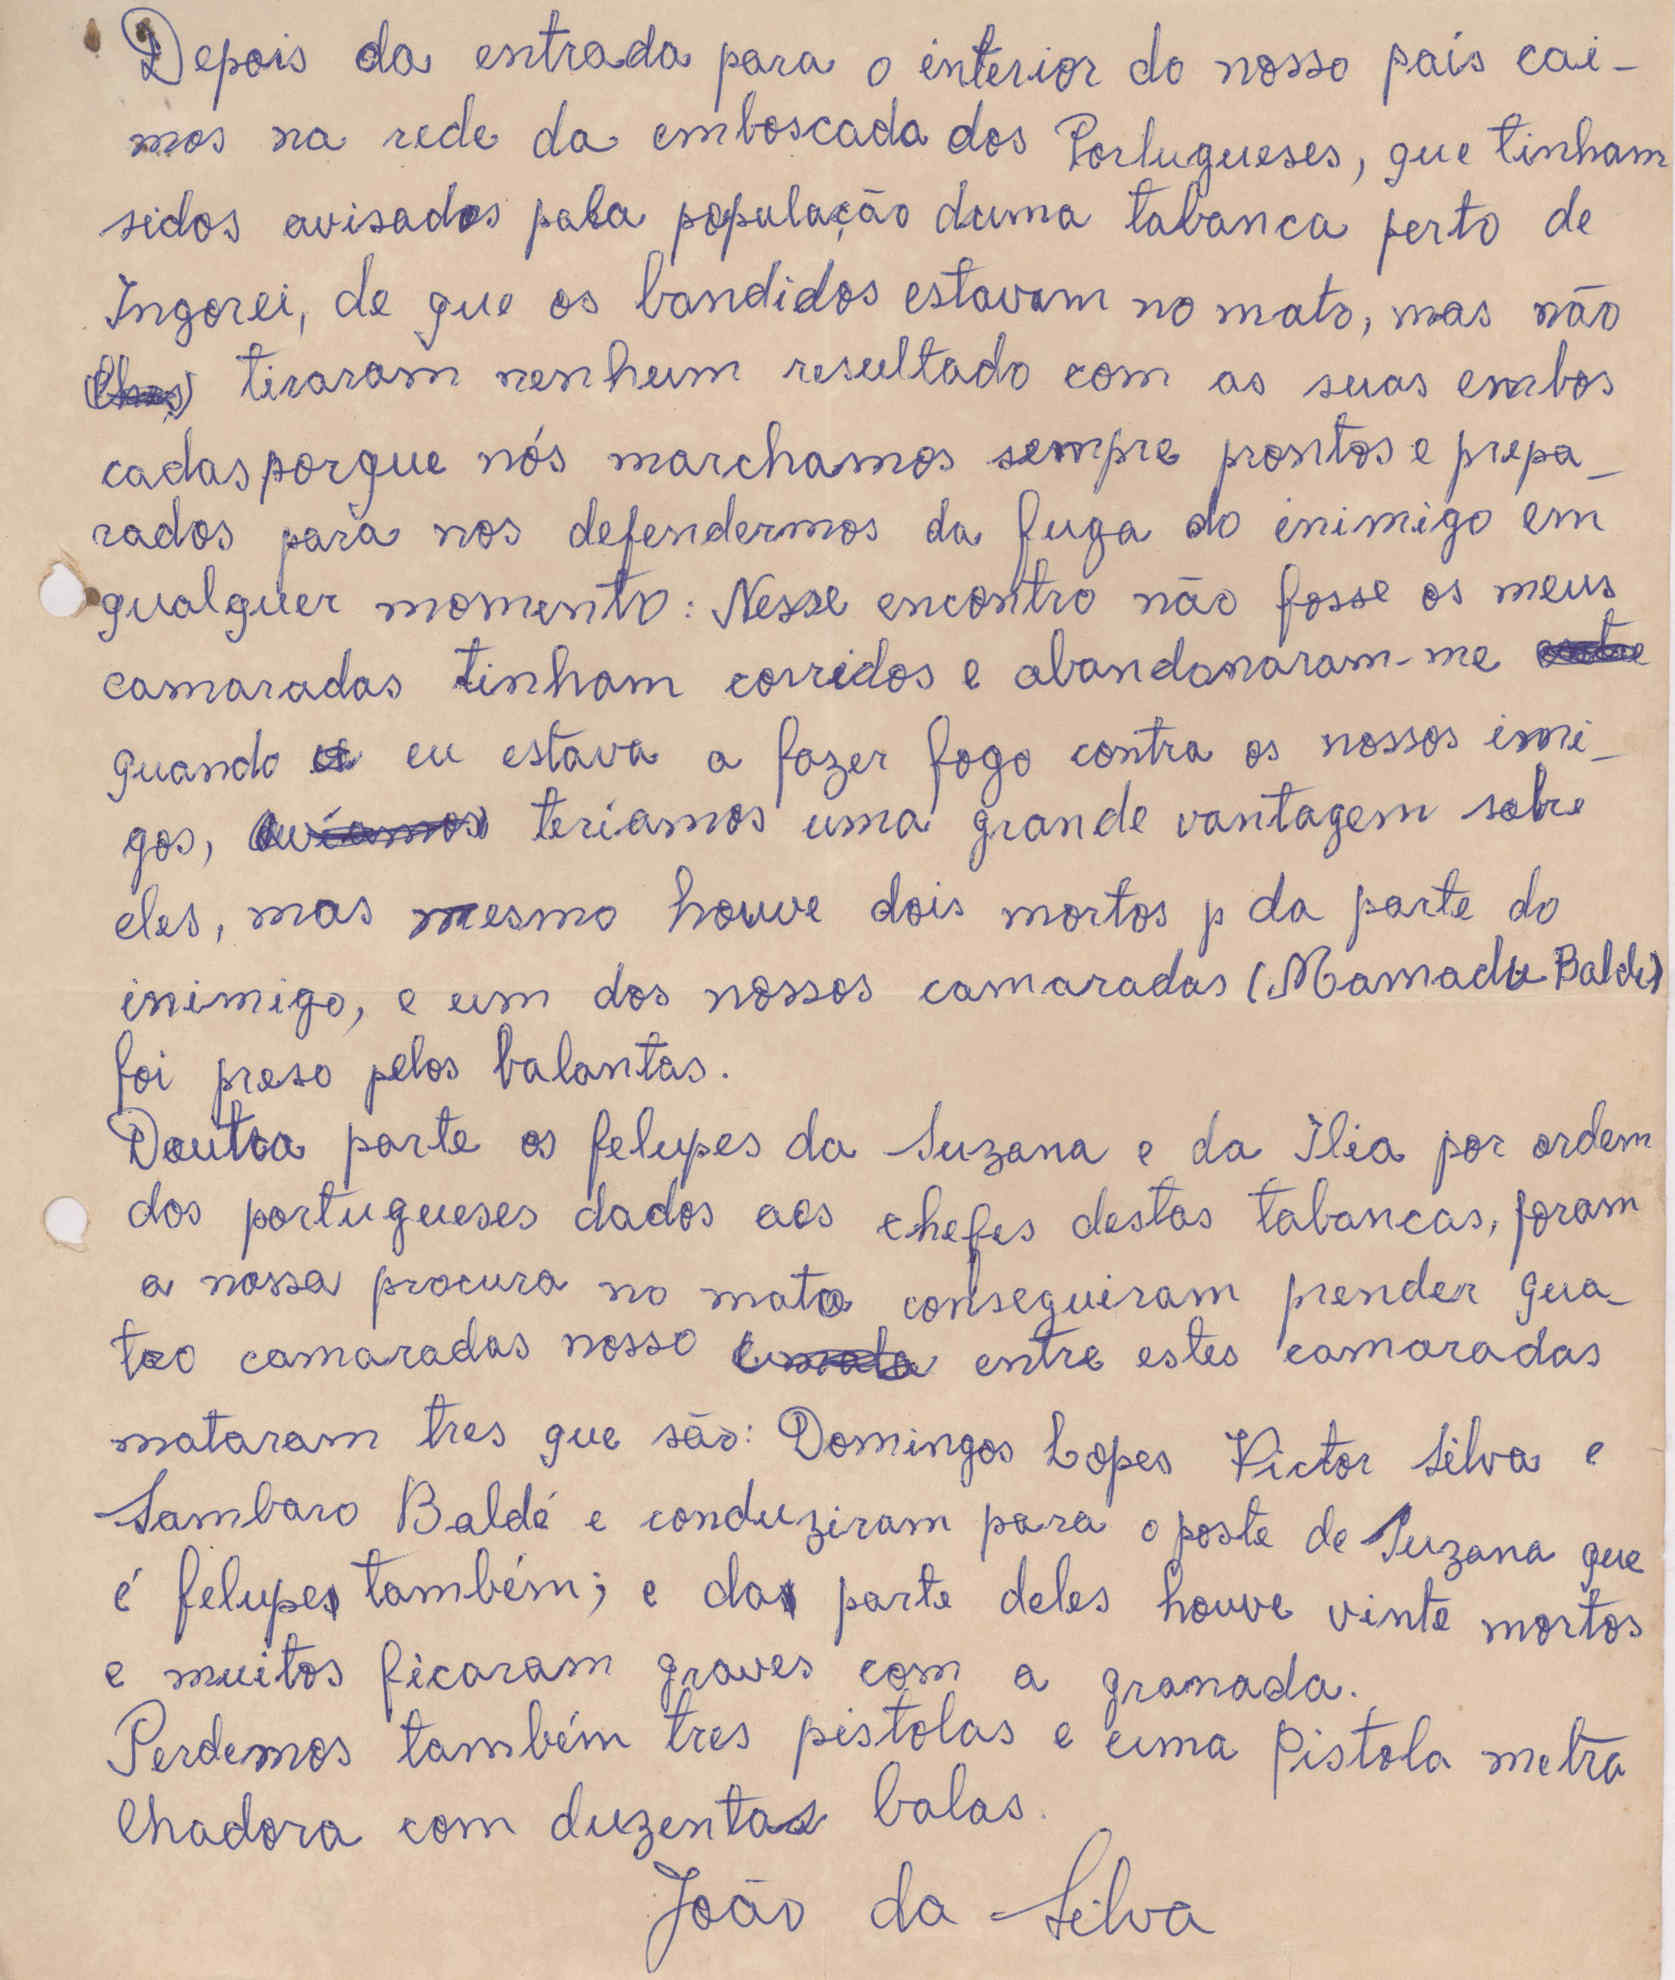 Depois da entrada para o interior do nosso país cai-
mos na rede da emboscada dos Portugueses, que tinham
sidos avisados pela população duma tabanca perto de
Ingorei, de que os bandidos estavam no mato, mas não
tiraram nenhum resultado com as suas embos
cadas porque nós marchamos sempre prontos e prepa-
rados para nos defendermos da fuga do inimigo em
qualquer momento: Nesse encontro não fosse os meus
camaradas tinham corridos e abandonaram-me
quando eu estava a fazer fogo contra os nossos imi-
gos, teriamos uma grande vantagem sobre
eles, mas mesmo houve dois mortos p da parte do
inimigo, e um dos nossos camaradas (Mamadu Balde)
foi preso pelos balantas.
Doutra parte os felupes da Suzana e da Ilia por ordem
dos portugueses dados aos chefes destas tabancas, foram
a nossa procura no mato conseguiram prender qua-
tro camaradas nosso entre estes camaradas
mataram tres que são: Domingos Lopes Victor Silva e
Sambaro Baldé e conduziram para o poste de Suzana que
é felupes também; e da parte deles houve vinte mortos
e muitos ficaram graves com a granada.
Perdemos também tres pistolas e uma Pistola metra
lhadora com duzentas balas.
João da Silva